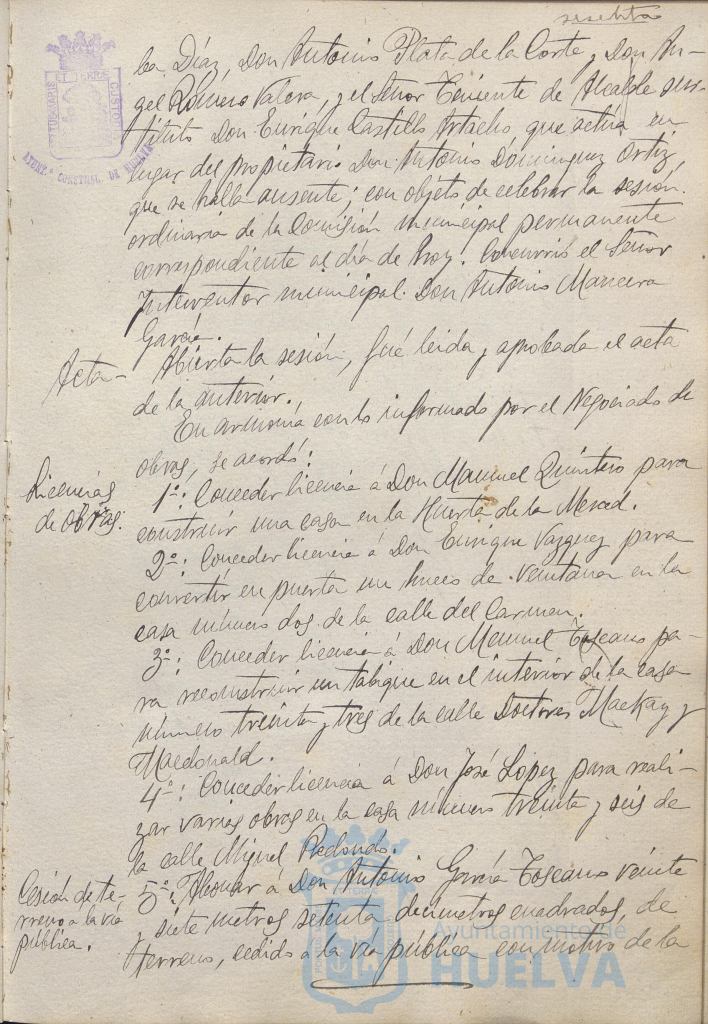 sesenta
ba Díaz, Don Antonio Plata de la Corte y Don An-
gel Romero Valera, y el Señor Teniente de Alcalde sus-
tituto Don Enrique Castillo Artacho que actúa en
lugar del propietario Don Antonio Domínguez Ortiz,
que se halla ausente; con objeto de celebrar la sesión
ordinaria de la Comisión municipal permanente
correspondiente al día de hoy. Concurrió el Señor
Interventor municipal Don Antonio Mancera
García.
Acta- Abierta la sesión, fué leida y aprobada el acta
de la anterior.
En armonía con lo informado por el Negociado de
obras, se acordó:
Licencias
de obras.
1º: Conceder licencia á Don Manuel Quintero para
construir una casa en la Huerta de la Merced.
2º: Conceder licencia á Don Enrique Vazquez para
convertir en puerta un hueco de ventana en la
casa número dos de la calle del Carmen.
3º: Conceder licencia á Don Manuel Toscano pa-
ra reconstruir un tabique en el interior de la casa
número treinta y tres de la calle Doctores Mackay y
Macdonald.
4º: Conceder licencia á Don José López para reali-
zar varias obras en la casa número treinta y seis de
la calle Miguel Redondo.
Cesión de te-
rreno a la vía
pública.
5º: Abonar á Don Antonio García Toscano veinte
y siete metros setenta decímetros cuadrados, de
terreno, cedido á la vía pública con motivo de la
AYUNT.º CONSTNAL. DE HUELVA
Ayuntamiento de
HUELVA